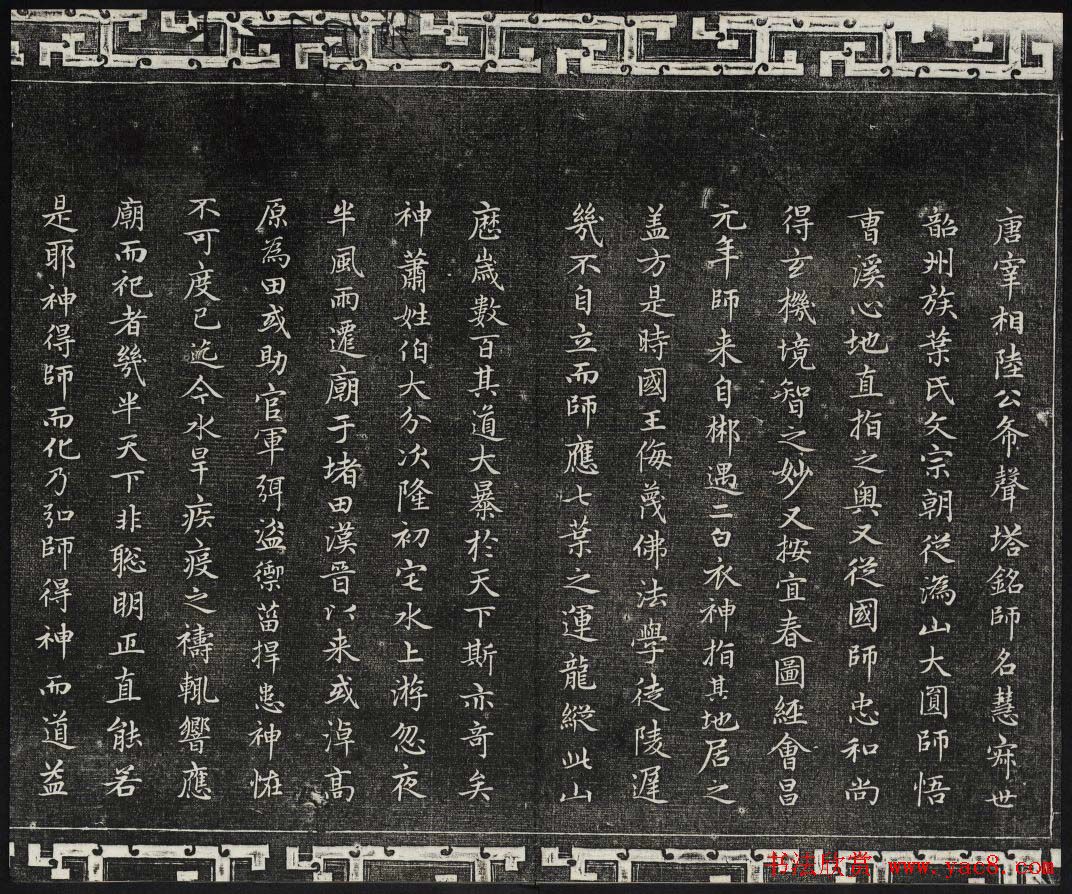 唐宰相陸公希聲塔銘師名慧寂世
韶州族葉氏文宗朝從溈山大圓師悟
曹溪心地直指之奧又從國師忠和尚
得玄機境智之妙又按宜春圖經會昌
元年師来自郴遇二白衣神指其地居之
盖方是時國王侮蔑佛法學徒陵遲
幾不自立而師應七葉之運龍縱此山
歷歲數百其道大暴於天下斯亦奇矣
神蕭姓伯大分次隆初宅水上游忽夜
半風雨遷廟于堵田漢晉以来或淖高
原為田或助官軍弭盜禦菑捍患神怪
不可度已迄今水旱疾疫之禱輒響應
廟而祀者幾半天下非聡明正直能若
是耶神得師而化乃弘師得神而道益
书法欣赏 www.yac8.com